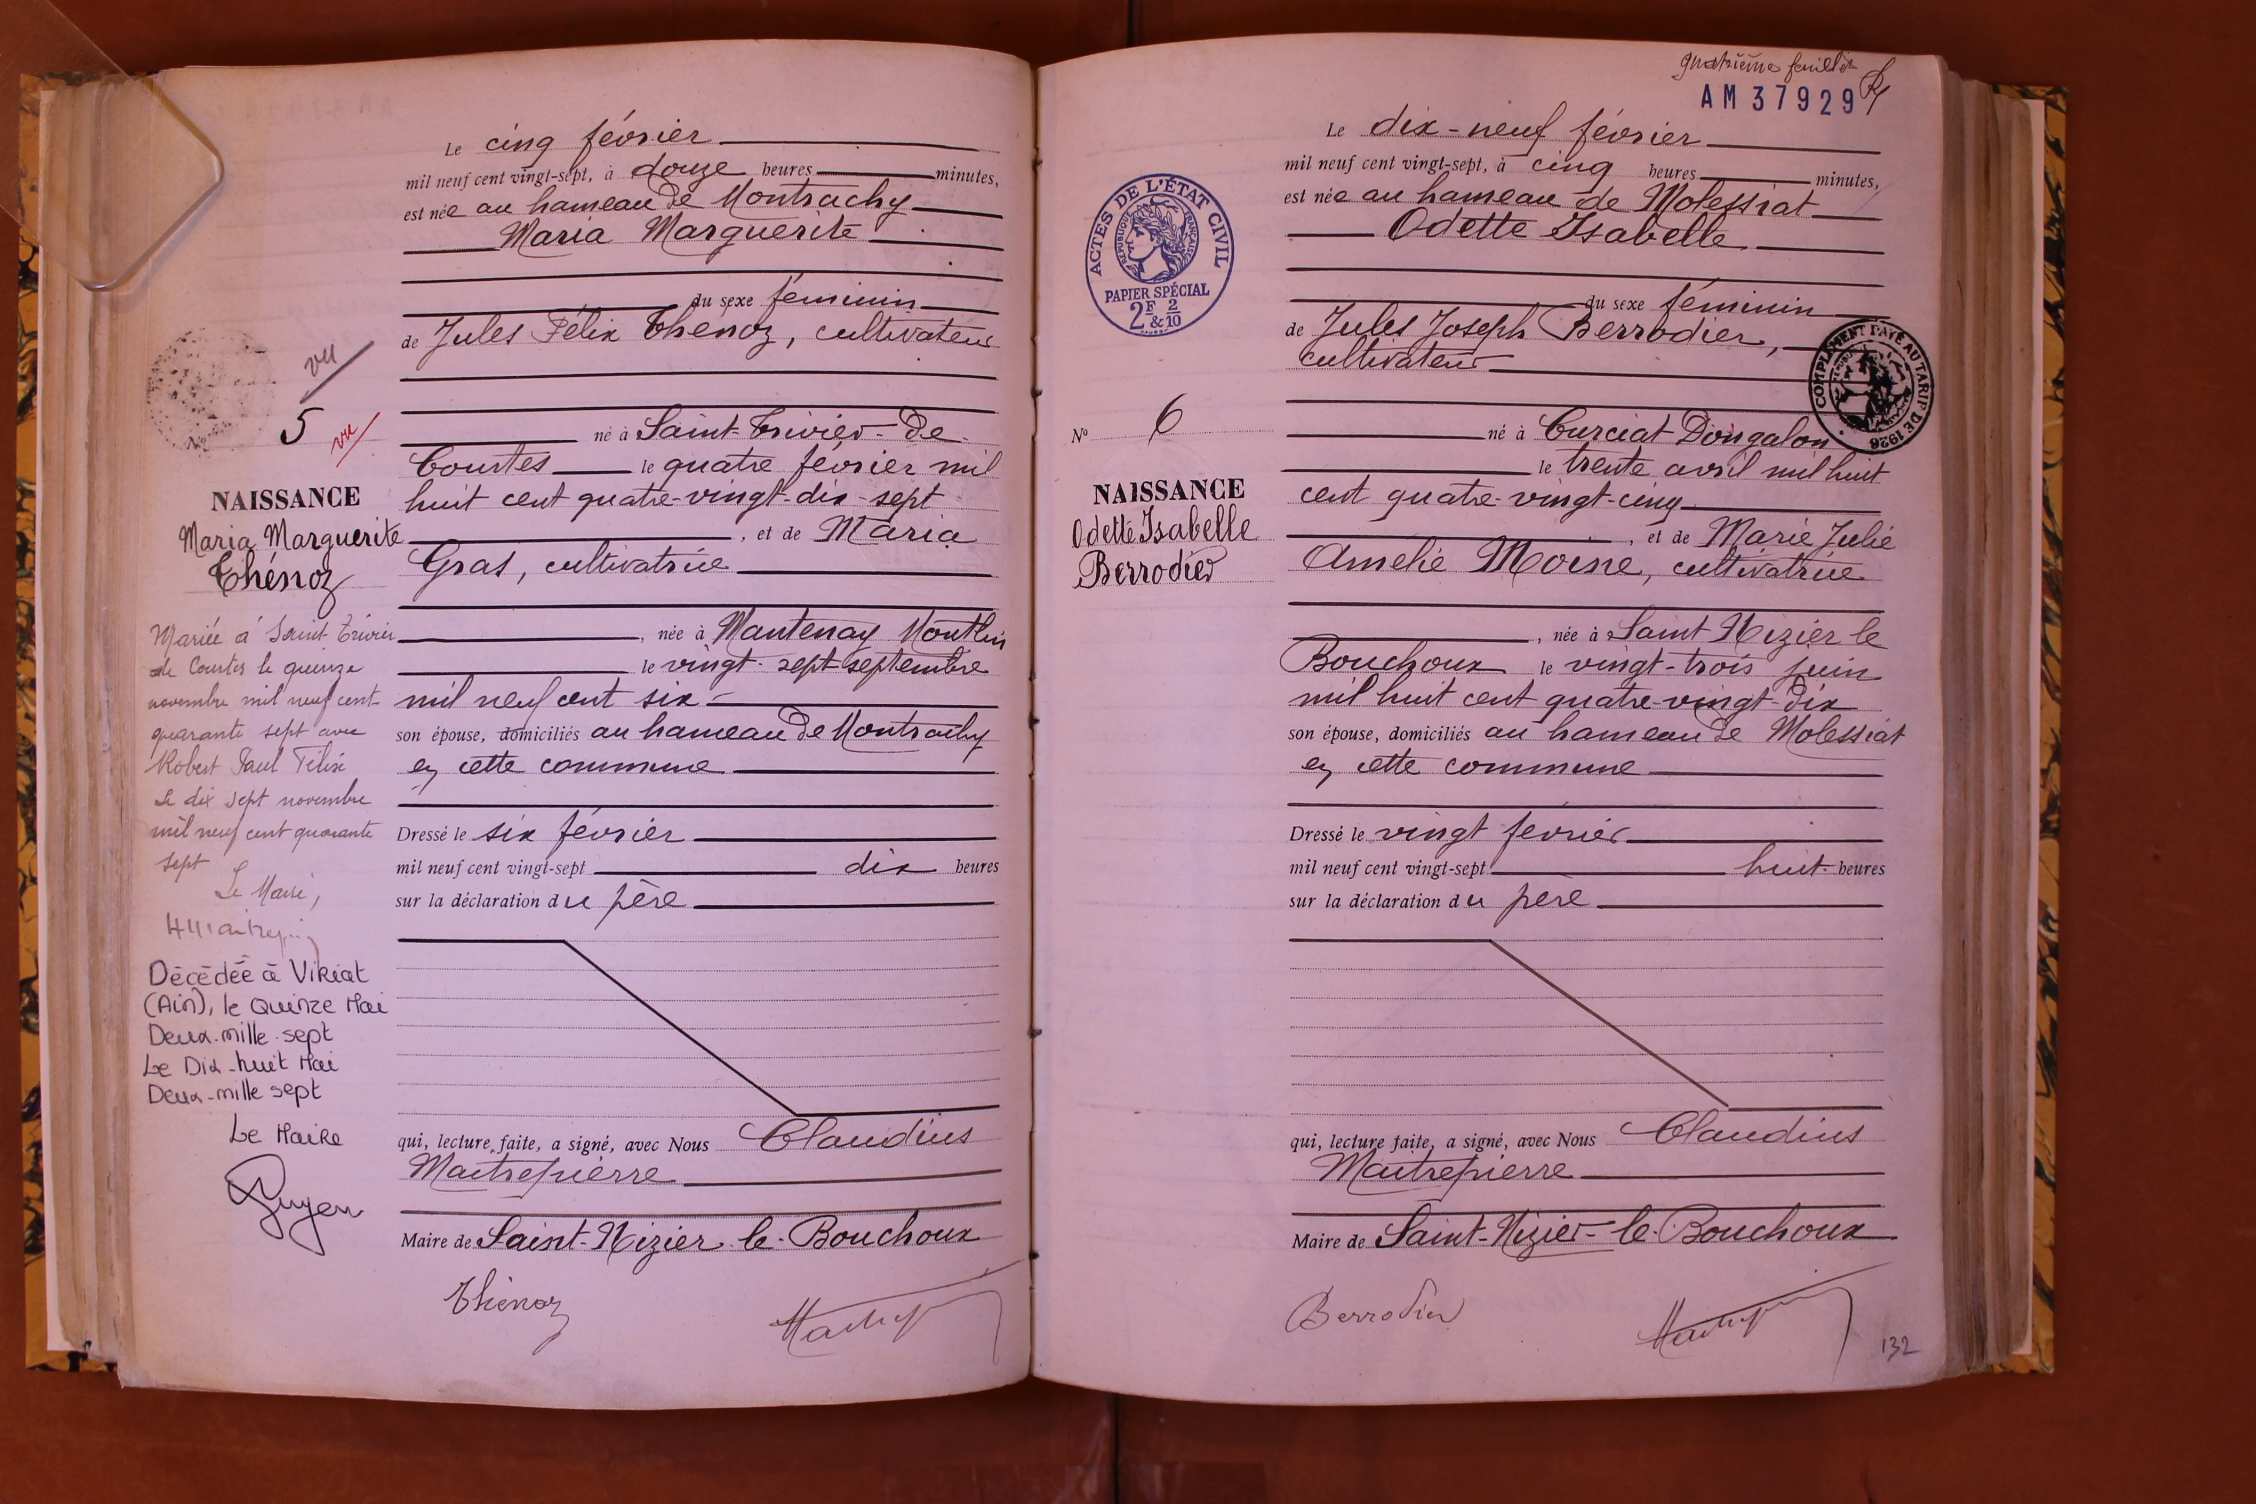 Le cinq février
mil neuf cent vingt-sept, à douze heures minutes,
est née au hameau de Montrachy
Maria Marguerite
du sexe féminin
de Jules Félix Thenoz, cultivateur
né à Saint-Trivier-de-
Courtes le quatre février mil
huit cent quatre-vingt-dix-sept
, et de Maria
Gras, cultivatrice
, née à Mantenay Montlin
le vingt-sept septembre
mil neuf cent six
son épouse, domiciliés au hameau de Montrachy
en cette commune
Dressé le six février
mil neuf cent vingt-sept dix heures
sur la déclaration du père
qui, lecture faite, a signé, avec Nous Claudius
Maitrepierre
Maire de Saint-Nizier-le-Bouchoux
Thenoz
vu
No 5
vu
NAISSANCE
Maria Marguerite
Thénoz
Mariée à Saint Trivier
de Courtes le quinze
novembre mil neuf cent
quarante sept avec
Robert Paul Félix
Le dix sept novembre
mil neuf cent quarante
sept
Le Maire,
Décédée à Viriat
(Ain), le Quinze Mai
Deux-mille-sept
Le Dix-huit Mai
Deux-mille sept
Le Maire
quatrième feuillet
AM 37929
Le dix-neuf février
mil neuf cent vingt-sept, à cinq heures minutes,
est née au hameau de Molessiat
Odette Isabelle
du sexe féminin
de Jules Joseph Berrodier,
cultivateur
né à Curciat Dongalon
le trente avril mil huit
cent quatre-vingt-cinq
, et de Marie Julie
Amélie Moine, cultivatrice
, née à Saint Nizier le
Bouchoux le vingt-trois juin
mil huit cent quatre-vingt-dix
son épouse, domiciliés au hameau de Molessiat
en cette commune
Dressé le vingt février
mil neuf cent vingt-sept huit heures
sur la déclaration du père
qui, lecture faite, a signé, avec Nous Claudius
Maitrepierre
Maire de Saint-Nizier-le-Bouchoux
Berrodier
132
ACTES DE L'ÉTAT CIVIL
RÉPUBLIQUE FRANÇAISE
PAPIER SPÉCIAL
2F & 2/10
COMPLÉMENT PAYÉ AU TARIF DE 1926
No 6
NAISSANCE
Odette Isabelle
Berrodier